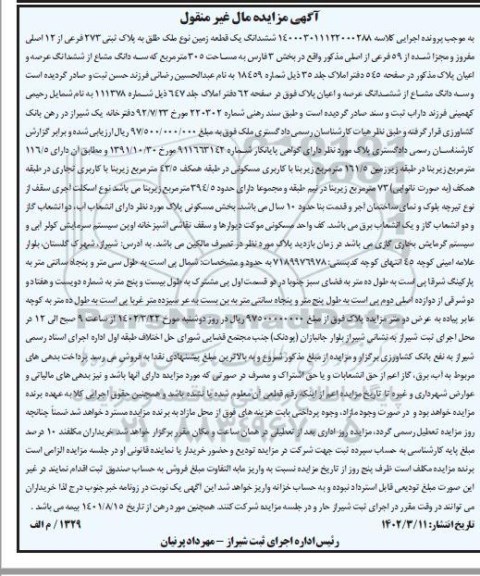 آگهی مزایده مال غیر منقول
به موجب پرونده اجرایی کلاسه ۱۴۰۰۰۳۰۱۱۱۲۲۰۰۰۲۸۸ ششدانگ یک قطعه زمین نوع ملک طلق به پلاک ثبتی ۲۷۳ فرعی از ۱۲ اصلی
مفروز و مجزا شده از ۵۹ فرعی از اصلی مذکور واقع در بخش ۳ فارس به مساحت ۳۰۵ مترمربع که سه دانگ مشاع از ششدانگ عرصه و
اعیان پلاک مذکور در صفحه ۵۴۵ دفتر املاک جلد ۳۵ ذیل شماره ۱۸۴۵۹ به نام عبدالحسین رضائی فرزند حسن ثبت و صادر گردیده است
و سه دانگ مشاع از ششدانگ عرصه و اعیان پلاک فوق در صفحه ۶۲ دفتر املاک جلد ۶۴۷ ذیل شماره ۱۱۱۳۷۸ به نام شمایل رحیمی
کهمینی فرزند داراب ثبت و سند صادر گردیده است و طبق سند رهنی شماره ۲۲۰۳۰۲ مورخ ۹۲/۷/۳۳ دفترخانه یک شیراز در رهن بانک
کشاورزی قرار گرفته و طبق نظر هیات کارشناسان رسمی دادگستری ملک فوق به مبلغ ۹۷/۵۰۰/۰۰۰/۰۰۰ ریال ارزیابی شده و برابر گزارش
کارشناسان رسمی دادگستری پلاک مورد نظر دارای گواهی پایانکار شماره ۹۱۱۶۶۳۱۴۲ مورخ ۱۳۹۱/۱۰/۳۰ و مطابق آن دارای ۱۱۶/۵
مترمربع زیربنا در طبقه زیرزمین ۱۶۱/۵ مترمربع زیربنا با کاربری مسکونی در طبقه همکف ۴۳/۵ مترمربع زیربنا با کاربری تجاری در طبقه
همکف (به صورت نانوایی) ۷۳ مترمربع زیربنا در نیم طبقه و مجموعا دارای حدود ۳۹۴/۵ مترمربع زیربنا می باشد نوع اسکلت آجری سقف از
نوع تیرچه بلوک و نمای ساختمان آجر و قدمت بنا حدود ۱۰ سال می باشد. بخش مسکونی پلاک مورد نظر دارای انشعاب آب، دو انشعاب گاز
و دو انشعاب گاز و یک انشعاب برق می باشد. کف واحد مسکونی موکت دیوارها و سقف نقاشی آشپزخانه اوپن سیستم سرمایش کولر آبی و
سیستم گرمایش بخاری گازی می باشد در زمان بازدید پلاک مورد نظر در تصرف مالکین می باشد. به آدرس: شیراز، شهرک گلستان، بلوار
علامه امینی کوچه ۴۵ انتهای کوچه کدپستی: ۷۱۸۹۹۷۶۹۷۸ به حدود و مشخصات: شمال پی است به طول سی متر و پنجاه سانتی متر به
پارکینگ شرقا پی است به طول ده متر به فضای سبز جنوبا در دو قسمت اول پی مشترک به طول بیست و پنج متر به شماره دویست و هفتاد و
دو شرقی از دوازده اصلی دوم پی است به طول پنج متر و پنجاه سانتی متر به بن بست به عر سیزده متر غربا پی است به طول ده متر به کوچه
عابر پیاده به عرض دو متر مزایده پلاک فوق از مبلغ ۹۷۵۰۰۰۰۰۰۰۰ ریال در روز دوشنبه مورخ ۱۴۰۲/۳/۲۲ از ساعت ۹ صبح الی ۱۲ در
محل اجرای ثبت شیراز به نشانی شیراز بلوار جانبازان (پودنک) جنب مجتمع قضایی شورای حل اختلاف طبقه اول اداره اجرای اسناد رسمی
شیراز به نفع بانک کشاورزی برگزار و مزایده از مبلغ مذکور شروع و به بالاترین مبلغ پیشنهادی نقدا به فروش می رسد پرداخت بدهی های
مربوط به آب، برق، گاز اعم از حق انشعابات و یا حق اشتراک و مصرف در صورتی که مورد مزایده دارای آنها باشد و نیز بدهی های مالیاتی و
عوارض شهرداری و غیره تا تاریخ مزایده اعم از اینکه رقم قطعی آن معلوم شده یا نشده باشد و همچنین حقوق اجرایی کلا به عهده برنده
مزایده خواهد بود و در صورت وجود مازاد، وجوه پرداختی بابت هزینه های فوق از محل مازاد به برنده مزایده مسترد خواهد شد ضمنا چنانچه
روز مزایده تعطیل رسمی گردد، مزایده روز اداری بعد از تعطیلی در همان ساعت و مکان مقرر برگزار خواهد شد. خریداران مکلفند ۱۰ درصد
مبلغ پایه کارشناسی به حساب سپرده ثبت جهت شرکت در مزایده تودیع و حضور خریدار یا نماینده قانونی او در جلسه مزایده الزامی است
برنده مزایده مکلف است ظرف پنج روز از تاریخ مزایده نسبت به واریز مابه التفاوت مبلغ فروش به حساب صندوق ثبت اقدام نمایند در غیر
این صورت مبلغ تودیعی قابل استرداد نبوده و به حساب خزانه واریز خواهد شد این آگهی یک نوبت در روزنامه خبرجنوب درج لذا خریداران
می توانند در وقت مقرر در اجرای ثبت شیراز حار و در جلسه مزایده شرکت کنند. همچنین مورد رهن از تاریخ ۱۴۰۱/۸/۱۵ بیمه می باشد.
تاریخ انتشار: ۱۴۰۲/۳/۱۱
۱۳۲۹ / م الف
رئیس اداره اجرای ثبت شیراز - مهرداد پرنیان